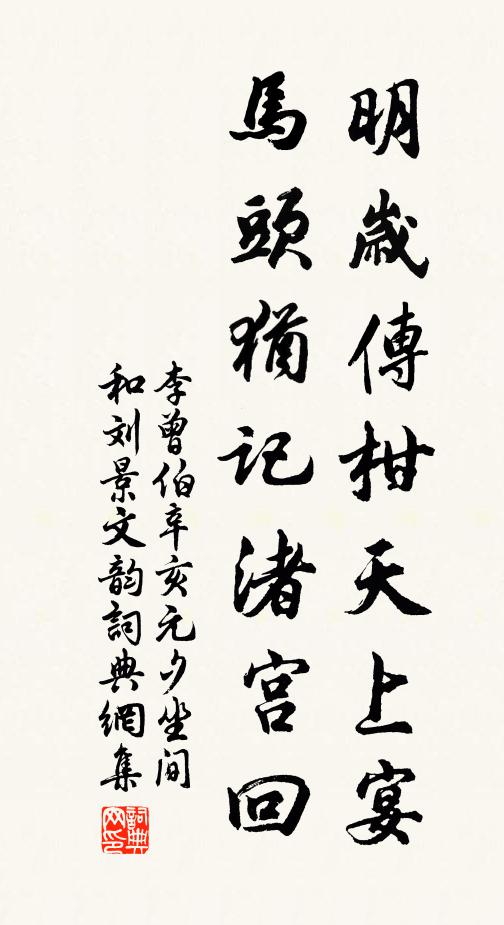 明歲傳柑天上宴
馬頭猶記渚宮回
李曾伯辛亥元夕坐间
和刘景文韵詞典網集
詞典网印